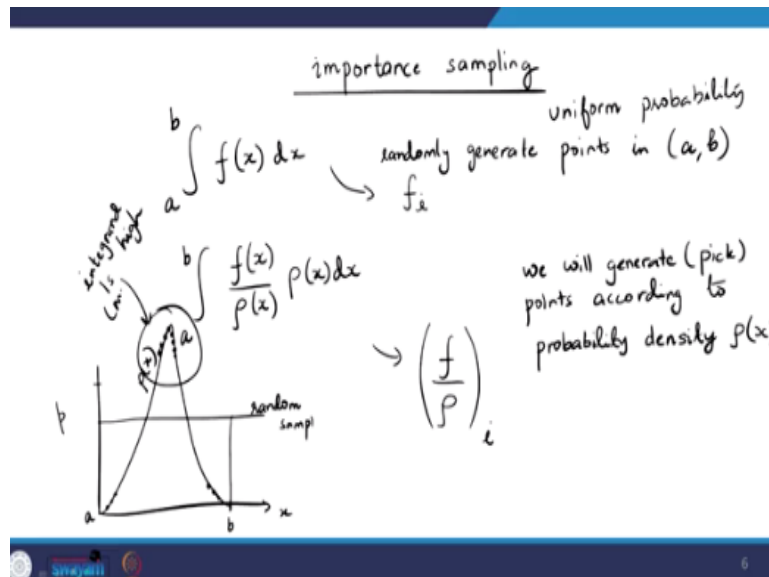 importance sampling
uniform probability
b
∫ f(x) dx
a
randomly generate points in (a, b)
f_i
integrand
is
high
b
∫ f(x)/ρ(x) ρ(x)dx
a
we will generate (pick)
points according to
probability density ρ(x
(f/ρ)_i
random
sampl
a
b
x
swayam
6